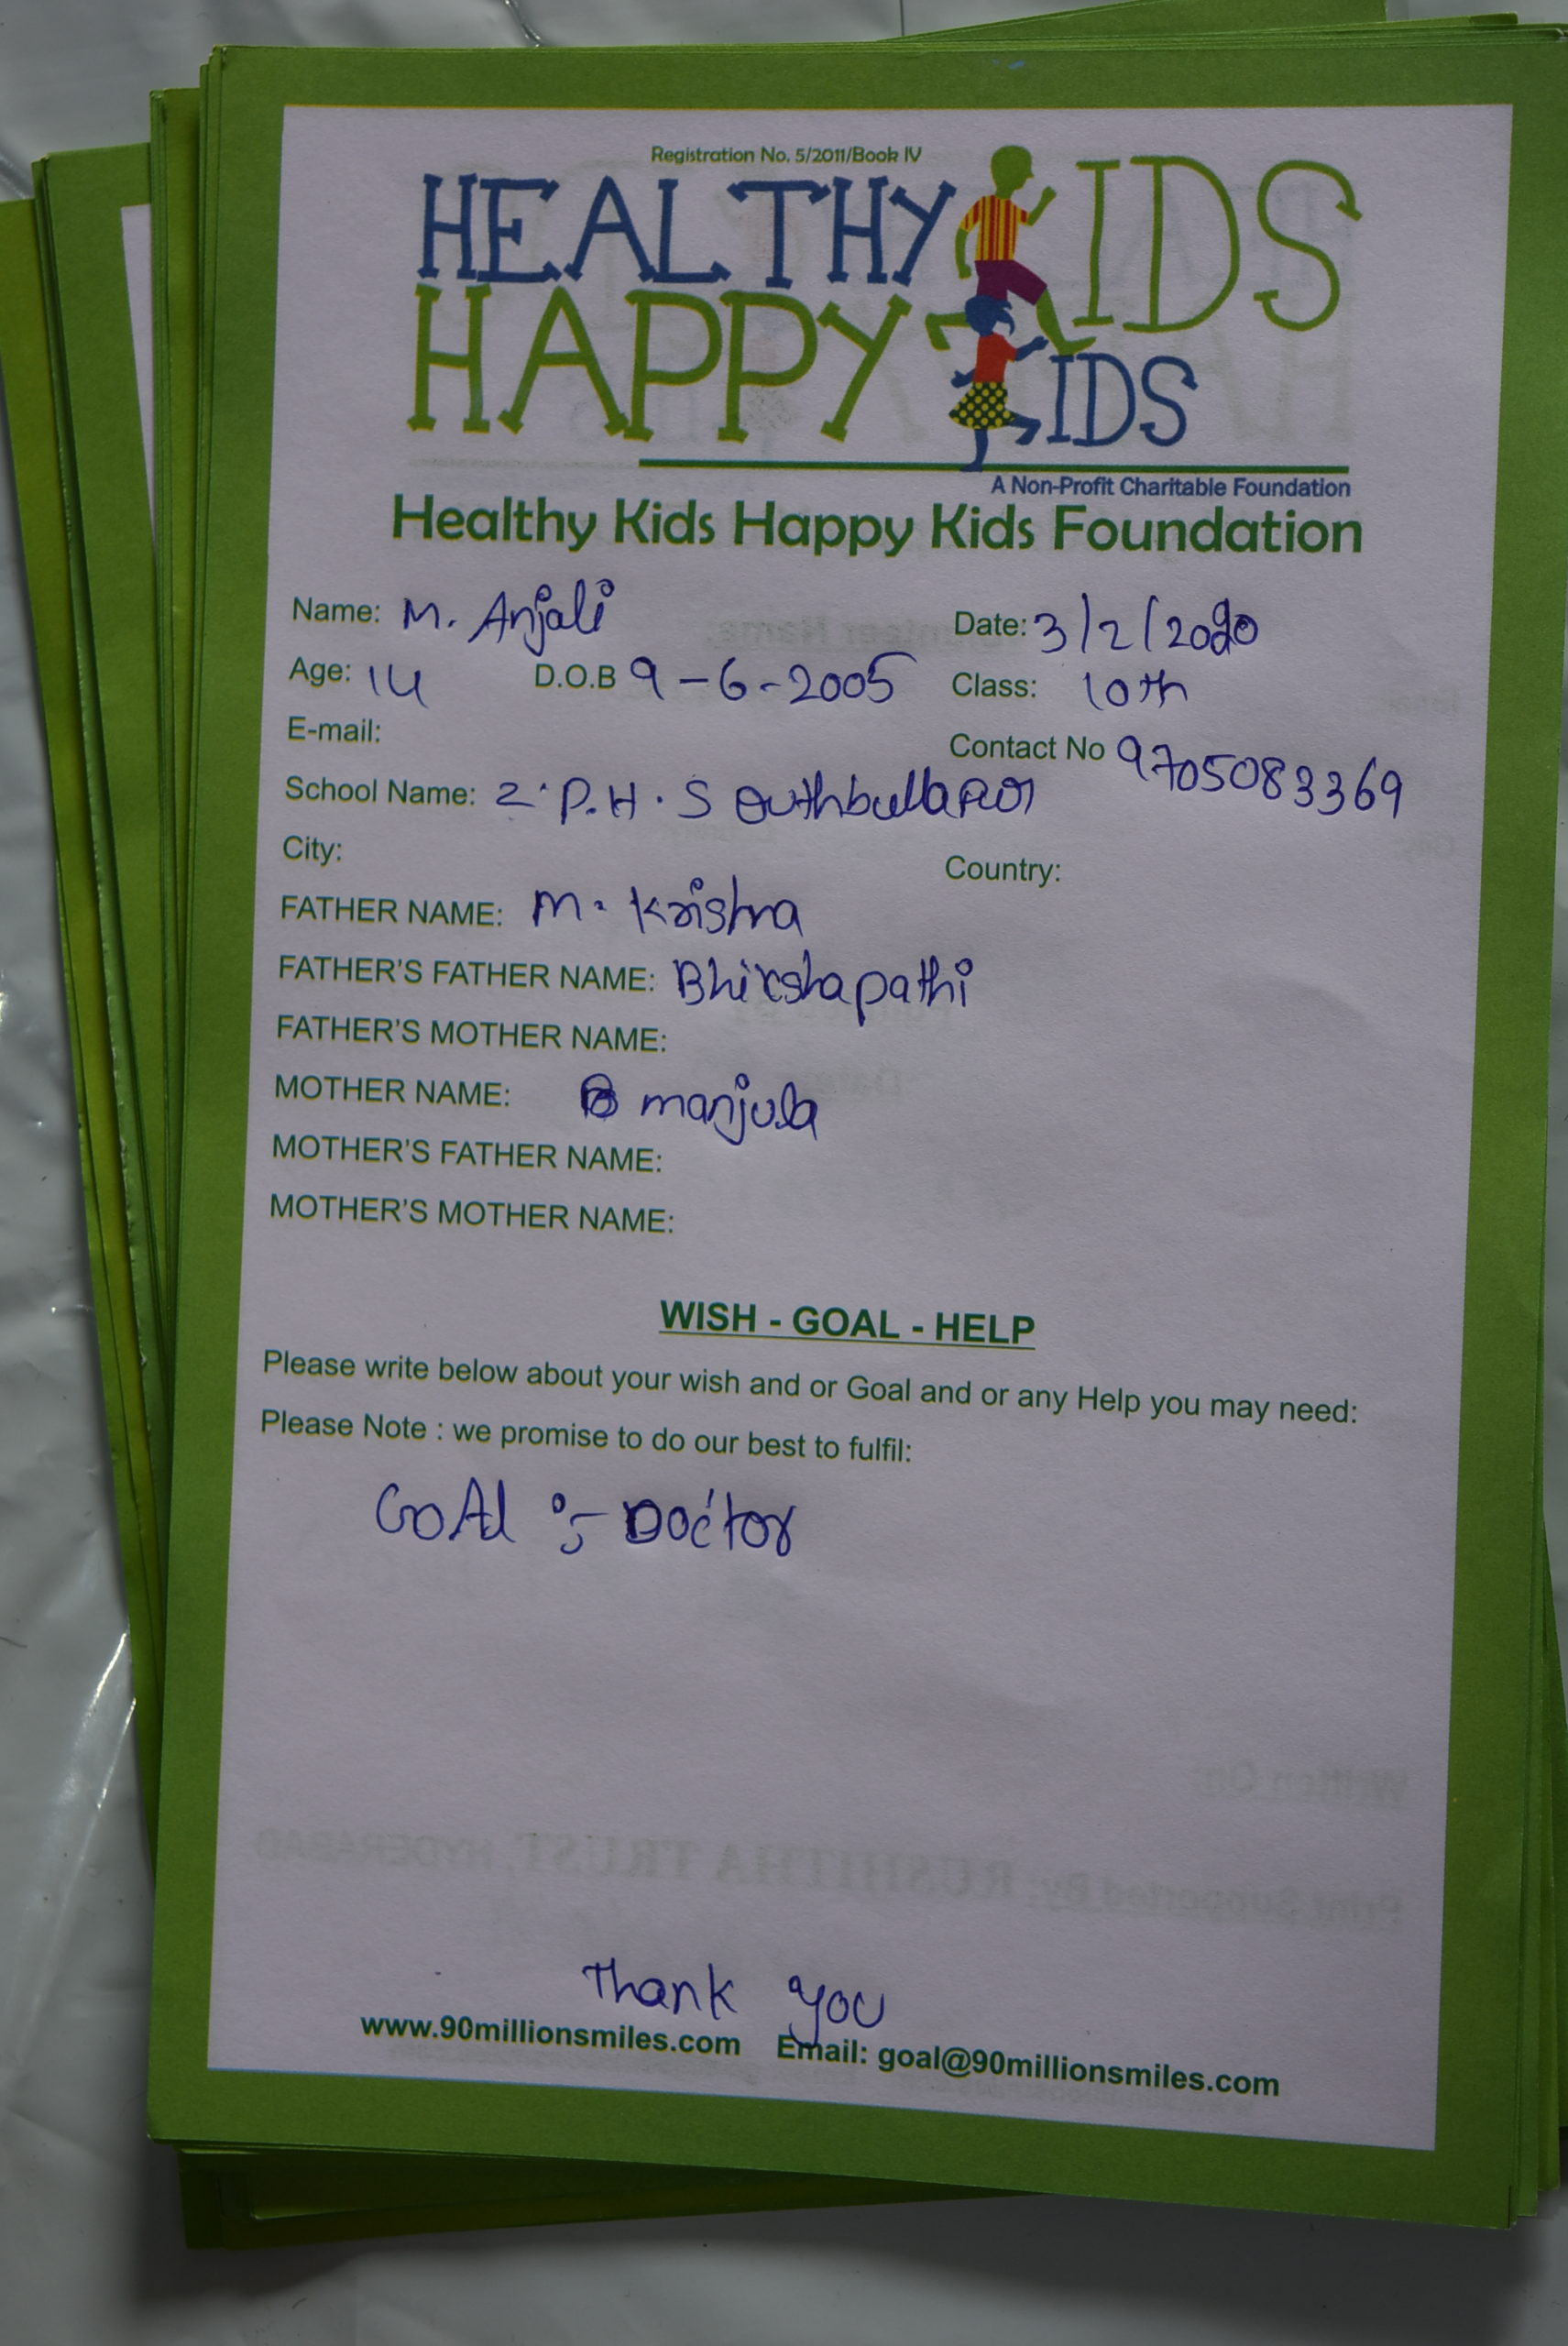 Registration No. 5/2011/Book IV
HEALTHY KIDS
HAPPY KIDS
A Non-Profit Charitable Foundation
Healthy Kids Happy Kids Foundation
Name: M. Anjali Date: 3/2/2020
Age: 14 D.O.B 9-6-2005 Class: 10th
E-mail: Contact No 9705083369
School Name: Z.P.H.S
City: Country:
FATHER NAME: M. Krishna
FATHER'S FATHER NAME: Bhixshapathi
FATHER'S MOTHER NAME:
MOTHER NAME: manjula
MOTHER'S FATHER NAME:
MOTHER'S MOTHER NAME:
WISH - GOAL - HELP
Please write below about your wish and or Goal and or any Help you may need:
Please Note : we promise to do our best to fulfil:
GoAl :- Doctor
Written On:
Print Supported By: RUSHITHA TRUST, HYDERABAD
Thank you
www.90millionsmiles.com Email: goal@90millionsmiles.com